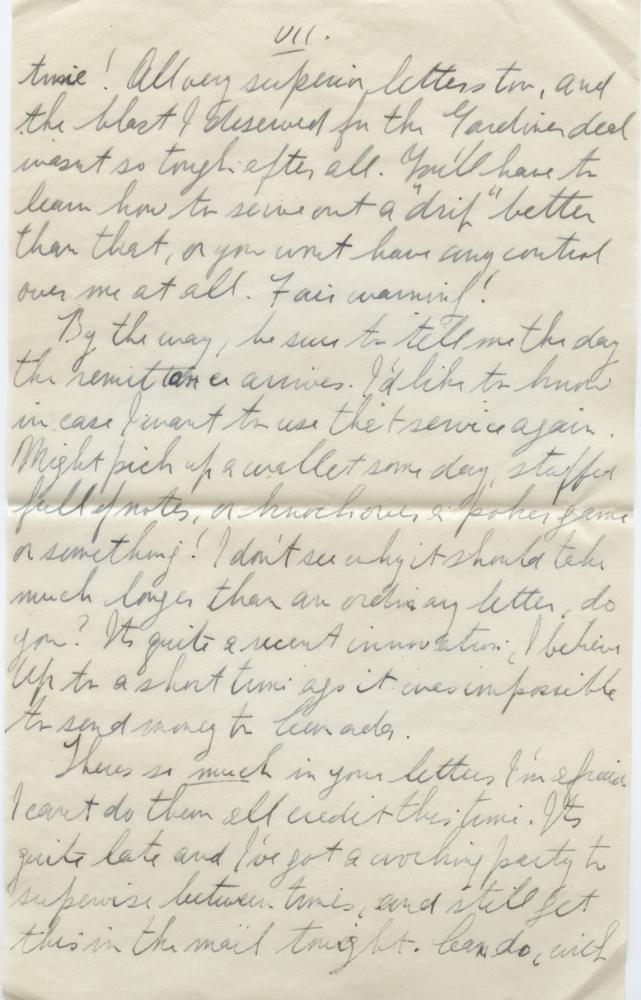 VII.
time! All very superior letters too, and
the blast I deserved for the Gardiner deal
wasnt so tough after all. You'll have to
learn how to serve out a "drip" better
than that, or you wont have any control
over me at all. Fair warning!
By the way, be sure to tell me the day
the remittance arrives. I'd like to know
in case I want to use that service again.
Might pick up a wallet some day, stuffed
full of notes, or knock over a poker game
or something! I don't see why it should take
much longer than an ordinary letter, do
you? Its quite a recent innovation, I believe
Up to a short time ago it was impossible
to send money to Canada.
Theres so much in your letters I'm afraid
I cant do them all credit this time. Its
quite late and I've got a working party to
supervise between times, and still get
this in the mail tonight. Can do, with